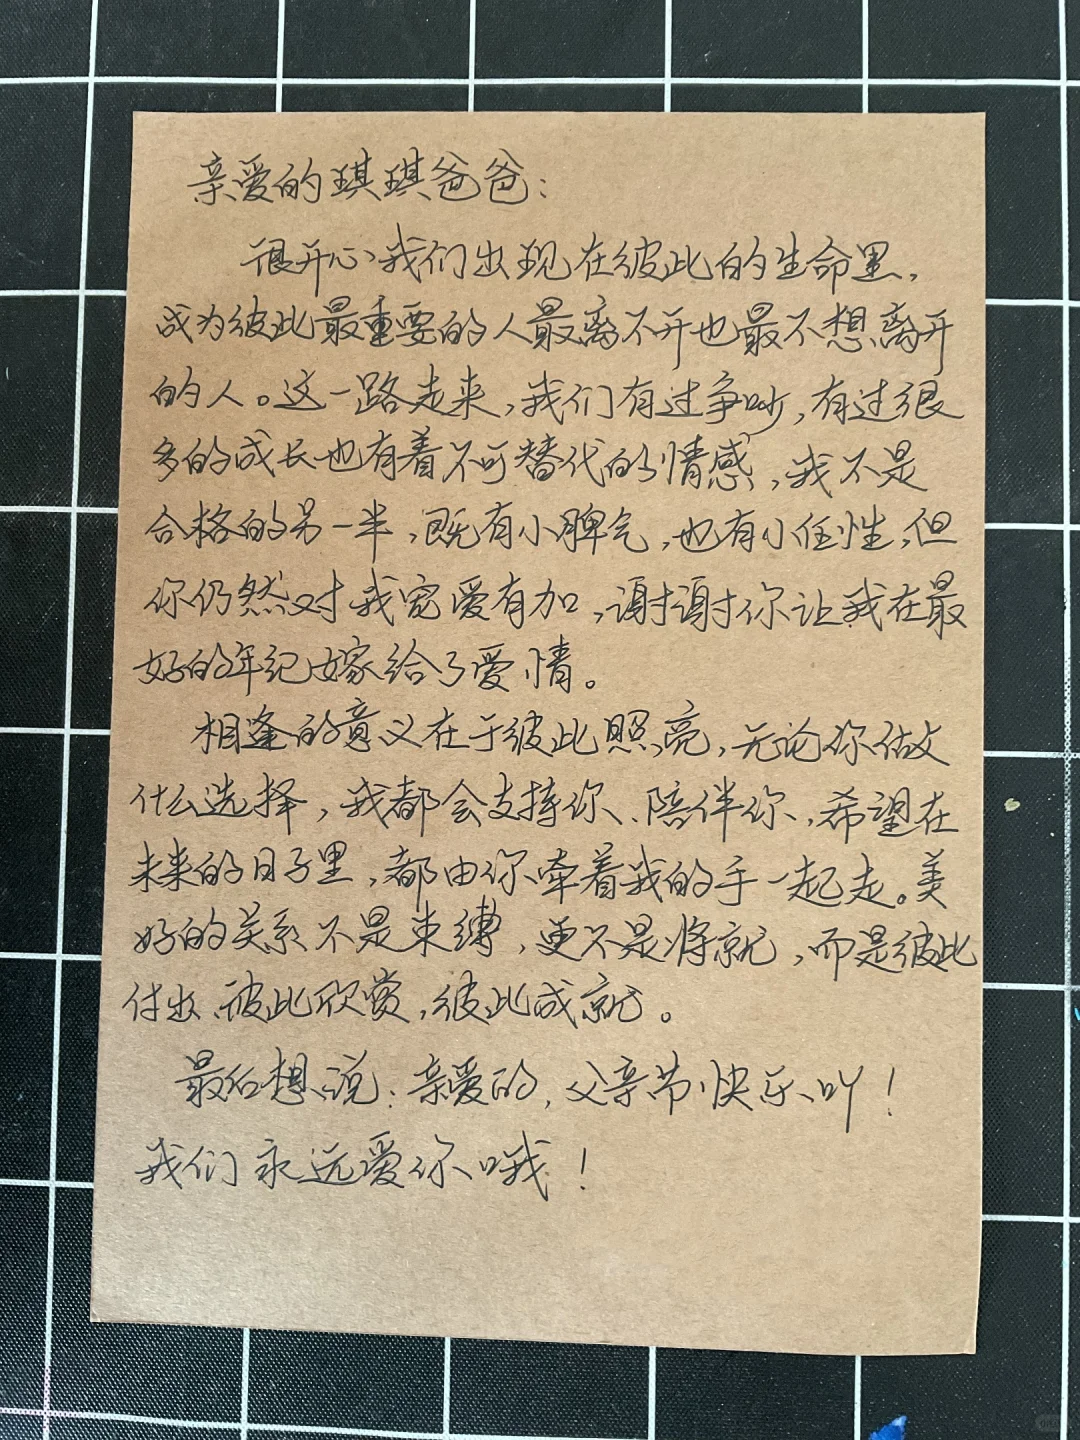 亲爱的琪琪爸爸:
很开心我们出现在彼此的生命里,
成为彼此最重要的人最离不开也最不想离开
的人。这一路走来,我们有过争吵,有过很
多的成长也有着不可替代的情感,我不是
合格的另一半,既有小脾气,也有小任性,但
你仍然对我宠爱有加,谢谢你让我在最
好的年纪嫁给了爱情。
相逢的意义在于彼此照亮,无论你做
什么选择,我都会支持你、陪伴你,希望在
未来的日子里,都由你牵着我的手一起走。美
好的关系不是束缚,更不是将就,而是彼此
付出、彼此欣赏,彼此成就。
最后想说:亲爱的,父亲节快乐吖!
我们永远爱你哦!